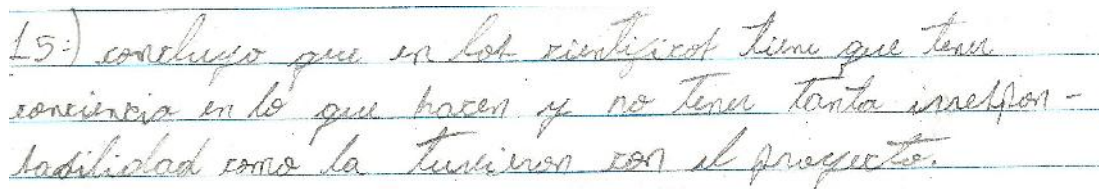 15:) concluyo que en los cientificos tiene que tener
conciencia en lo que hacen y no tener tanta irrespon-
sabilidad como la tuvieron con el proyecto.